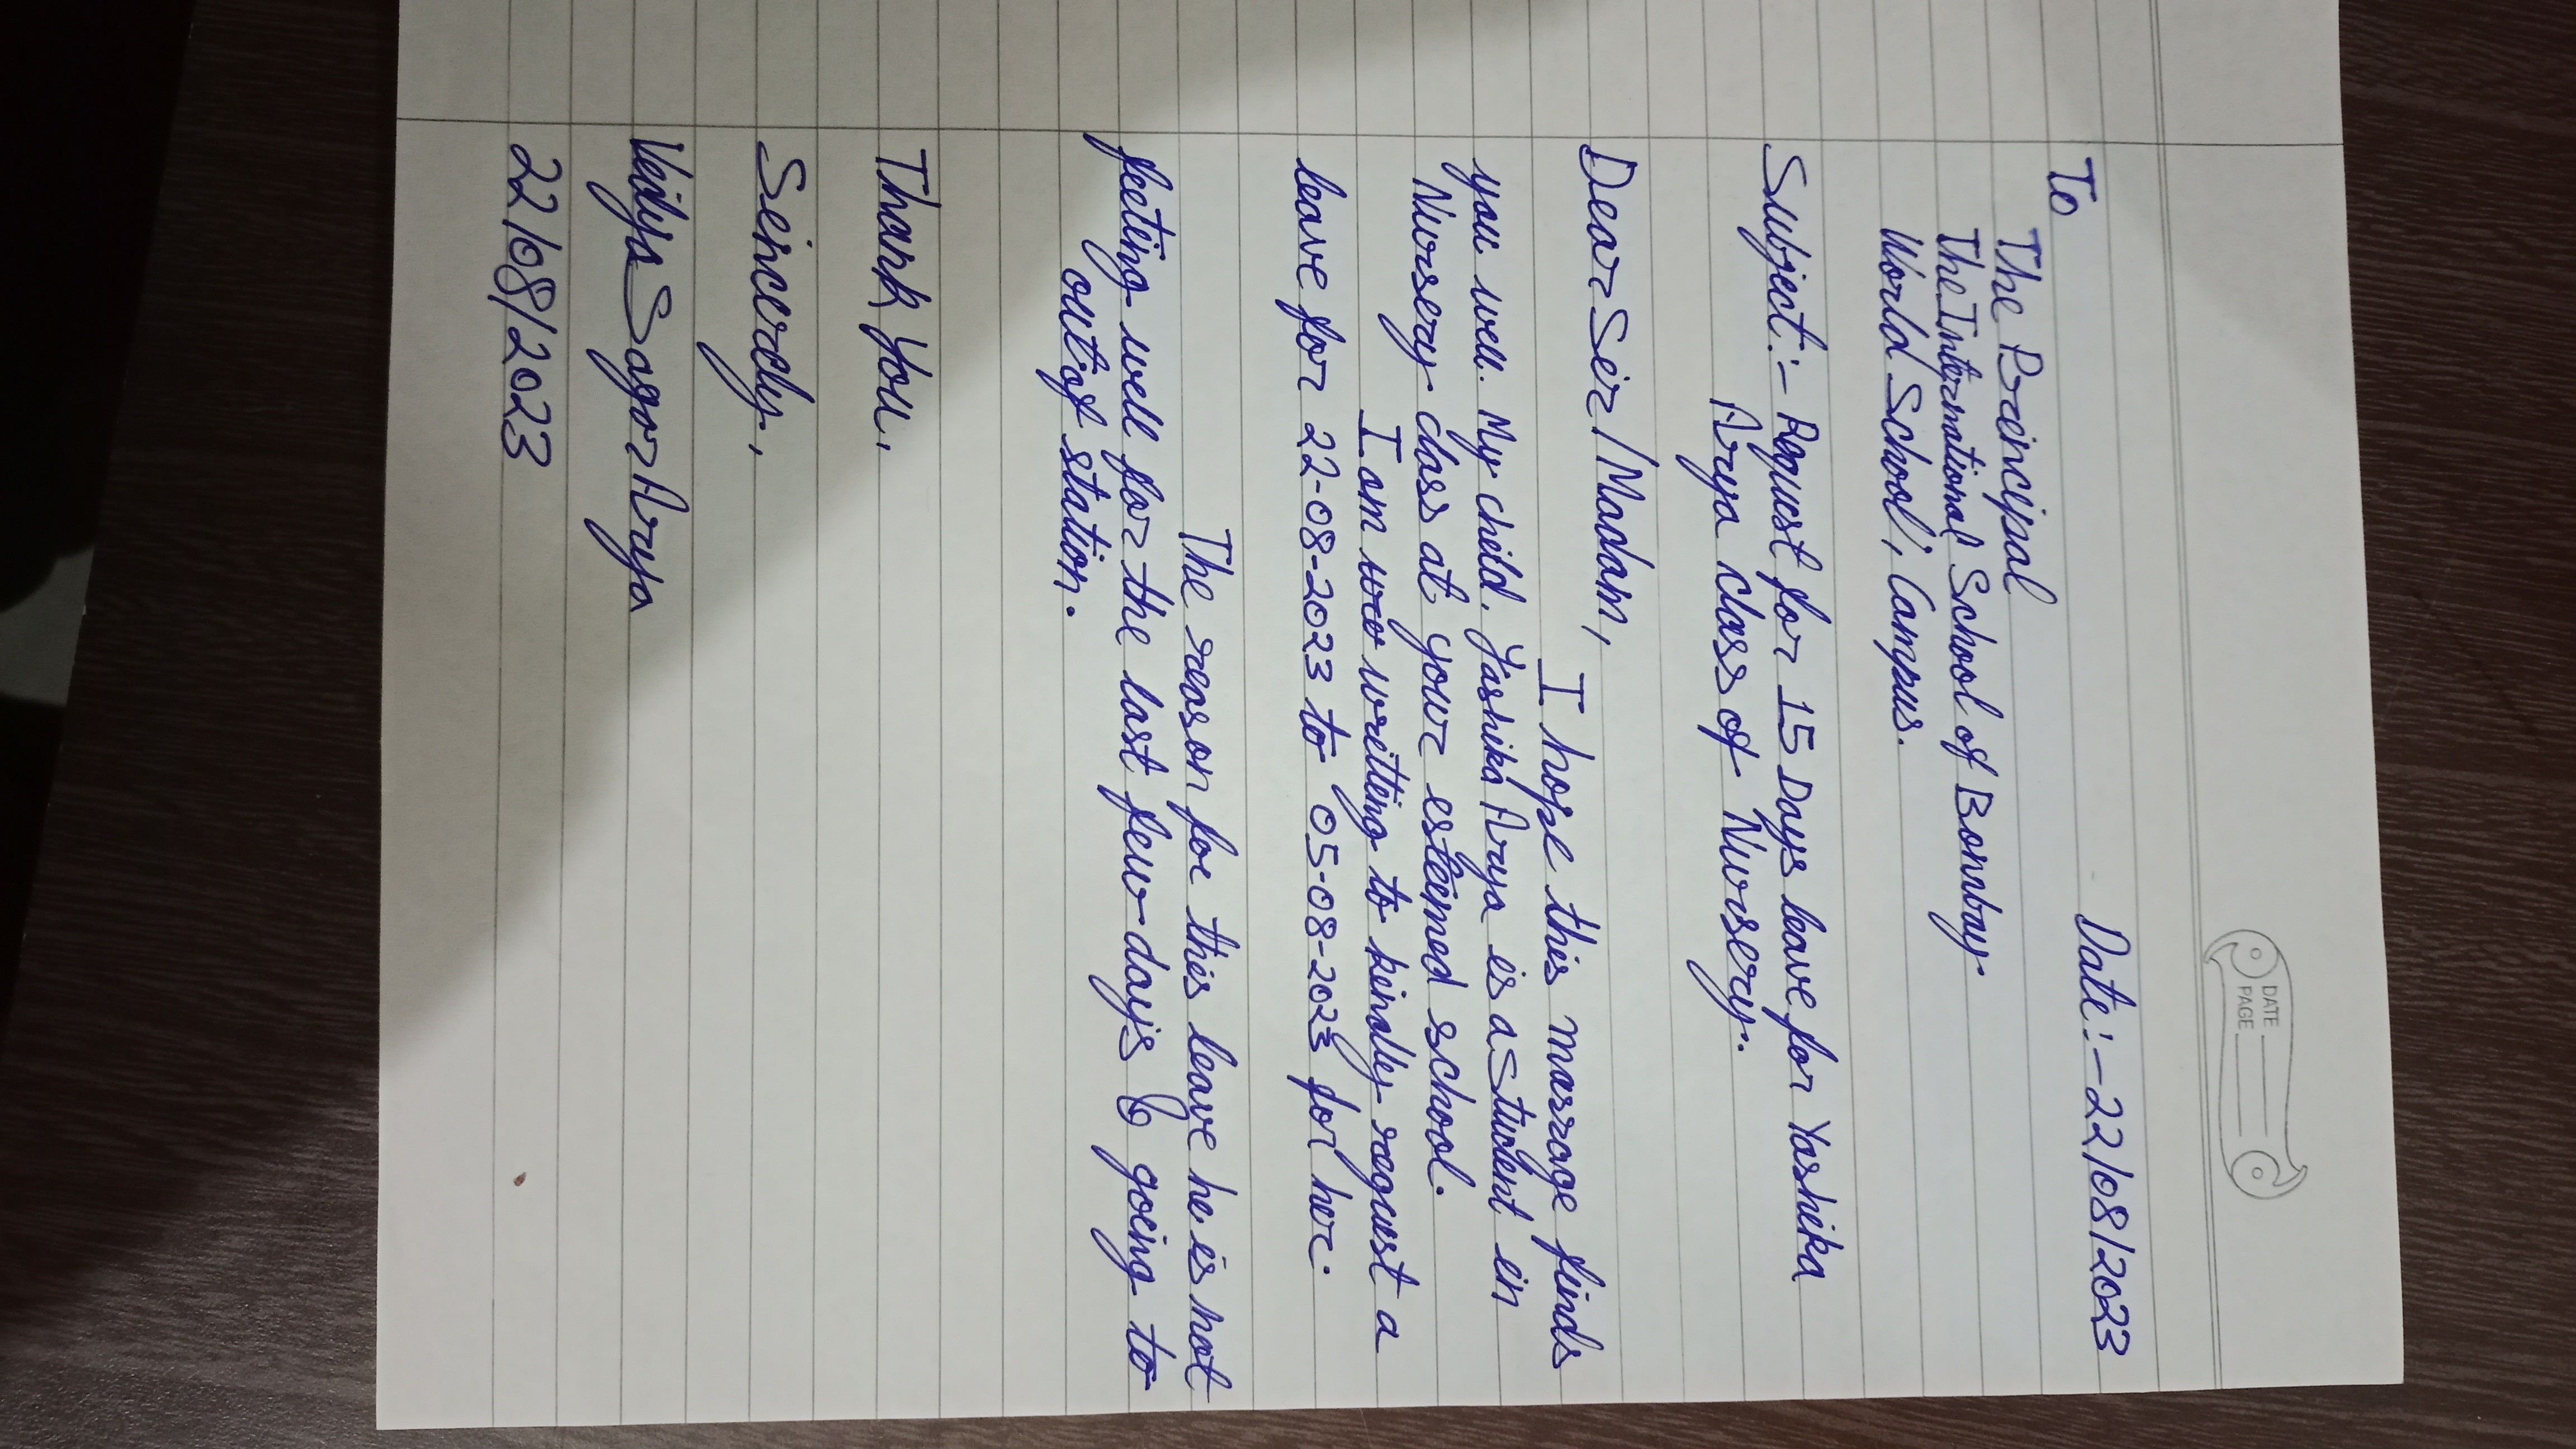 DATE
PAGE
Date:-22/08/2023
To
The Principal
The International School of Bombay
World School, Campus.
Subject:- Request for 15 Days leave for Yashika
Arya class of Nursery.
Dear Sir/Madam,
I hope this massage finds
you well. My child. Yashika Arya is a student in
Nursery class at your esteemed school.
I am writting to kindly request a
leave for 22-08-2023 to 05-08-2023 for her.
The reason for this leave he is not
feeting well for the last few-days & going to
out of station.
Thank You.
Sincerely,
Sagar Arya
22/08/2023